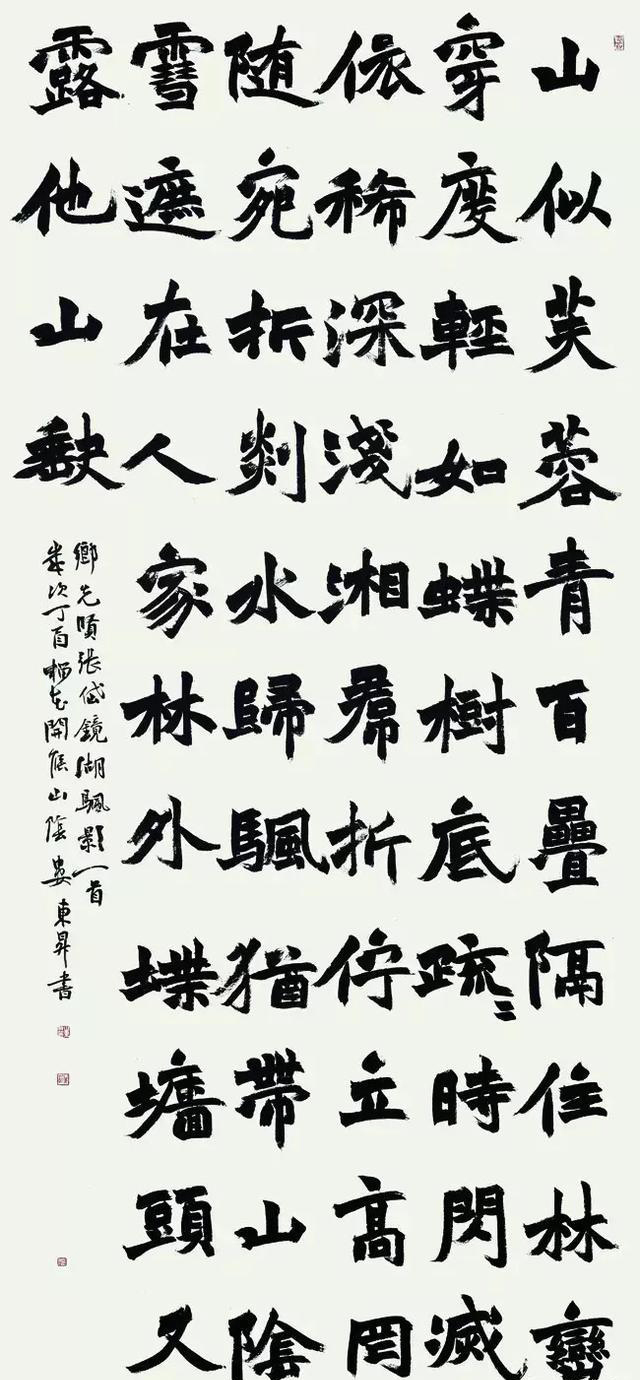 山似芙蓉青百疊隔住林巒
穿度輕如蝶樹底疏〻時閃滅
依稀深淺湘帬折佇立高岡
随宛折剡水歸颿猶帶山陰
雪遮在人家林外堞墻頭又
露他山缺
鄉先賢張岱鏡湖颿影一首
歲次丁酉梅花開候山陰婁東昇書